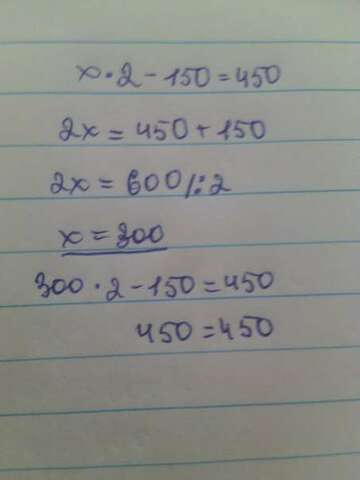 x · 2 - 150 = 450
2x = 450 + 150
2x = 600 /: 2
x = 300
300 · 2 - 150 = 450
450 = 450